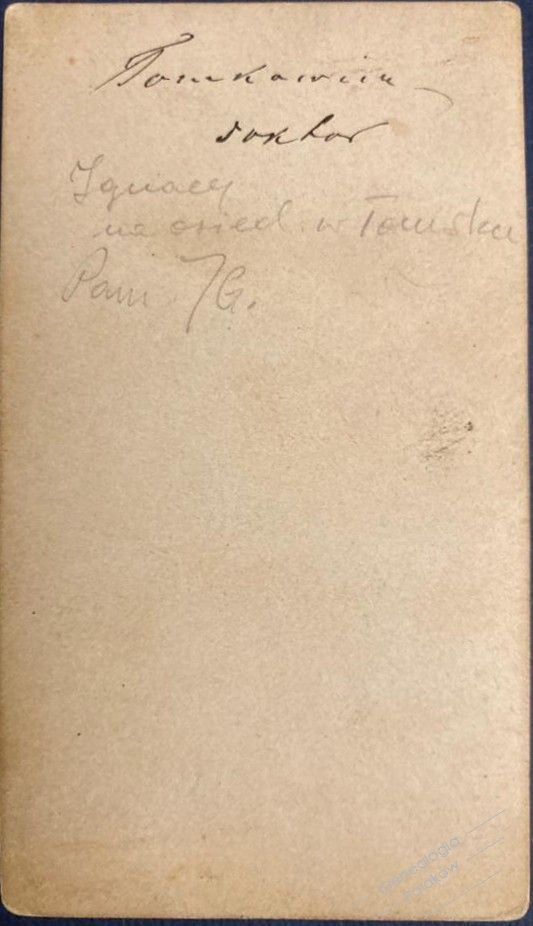 Tomkowicz
doktor
Ignacy
na osied. w Tomsku
Pam. JG.
Genealogia
Polaków